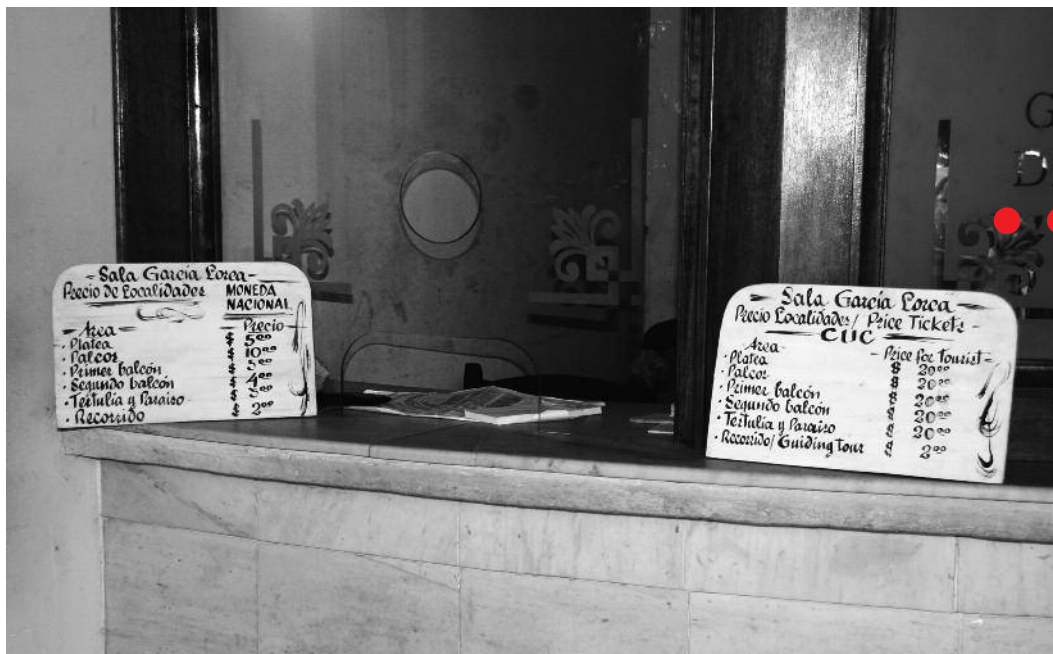 Sala García Lorca
Precio de Localidades MONEDA NACIONAL
Area Precio
Platea $ 5.00
Palcos $ 10.00
Primer balcón $ 5.00
Segundo balcón $ 4.00
Tertulia y Paraiso $ 3.00
Recorrido $ 2.00
Sala García Lorca
Precio Localidades / Price Tickets
CUC
Area Price for Tourist
Platea $ 20.00
Palcos $ 20.00
Primer balcón $ 20.00
Segundo balcón $ 20.00
Tertulia y Paraiso $ 20.00
Recorrido / Guiding tour $ 2.00
G
D